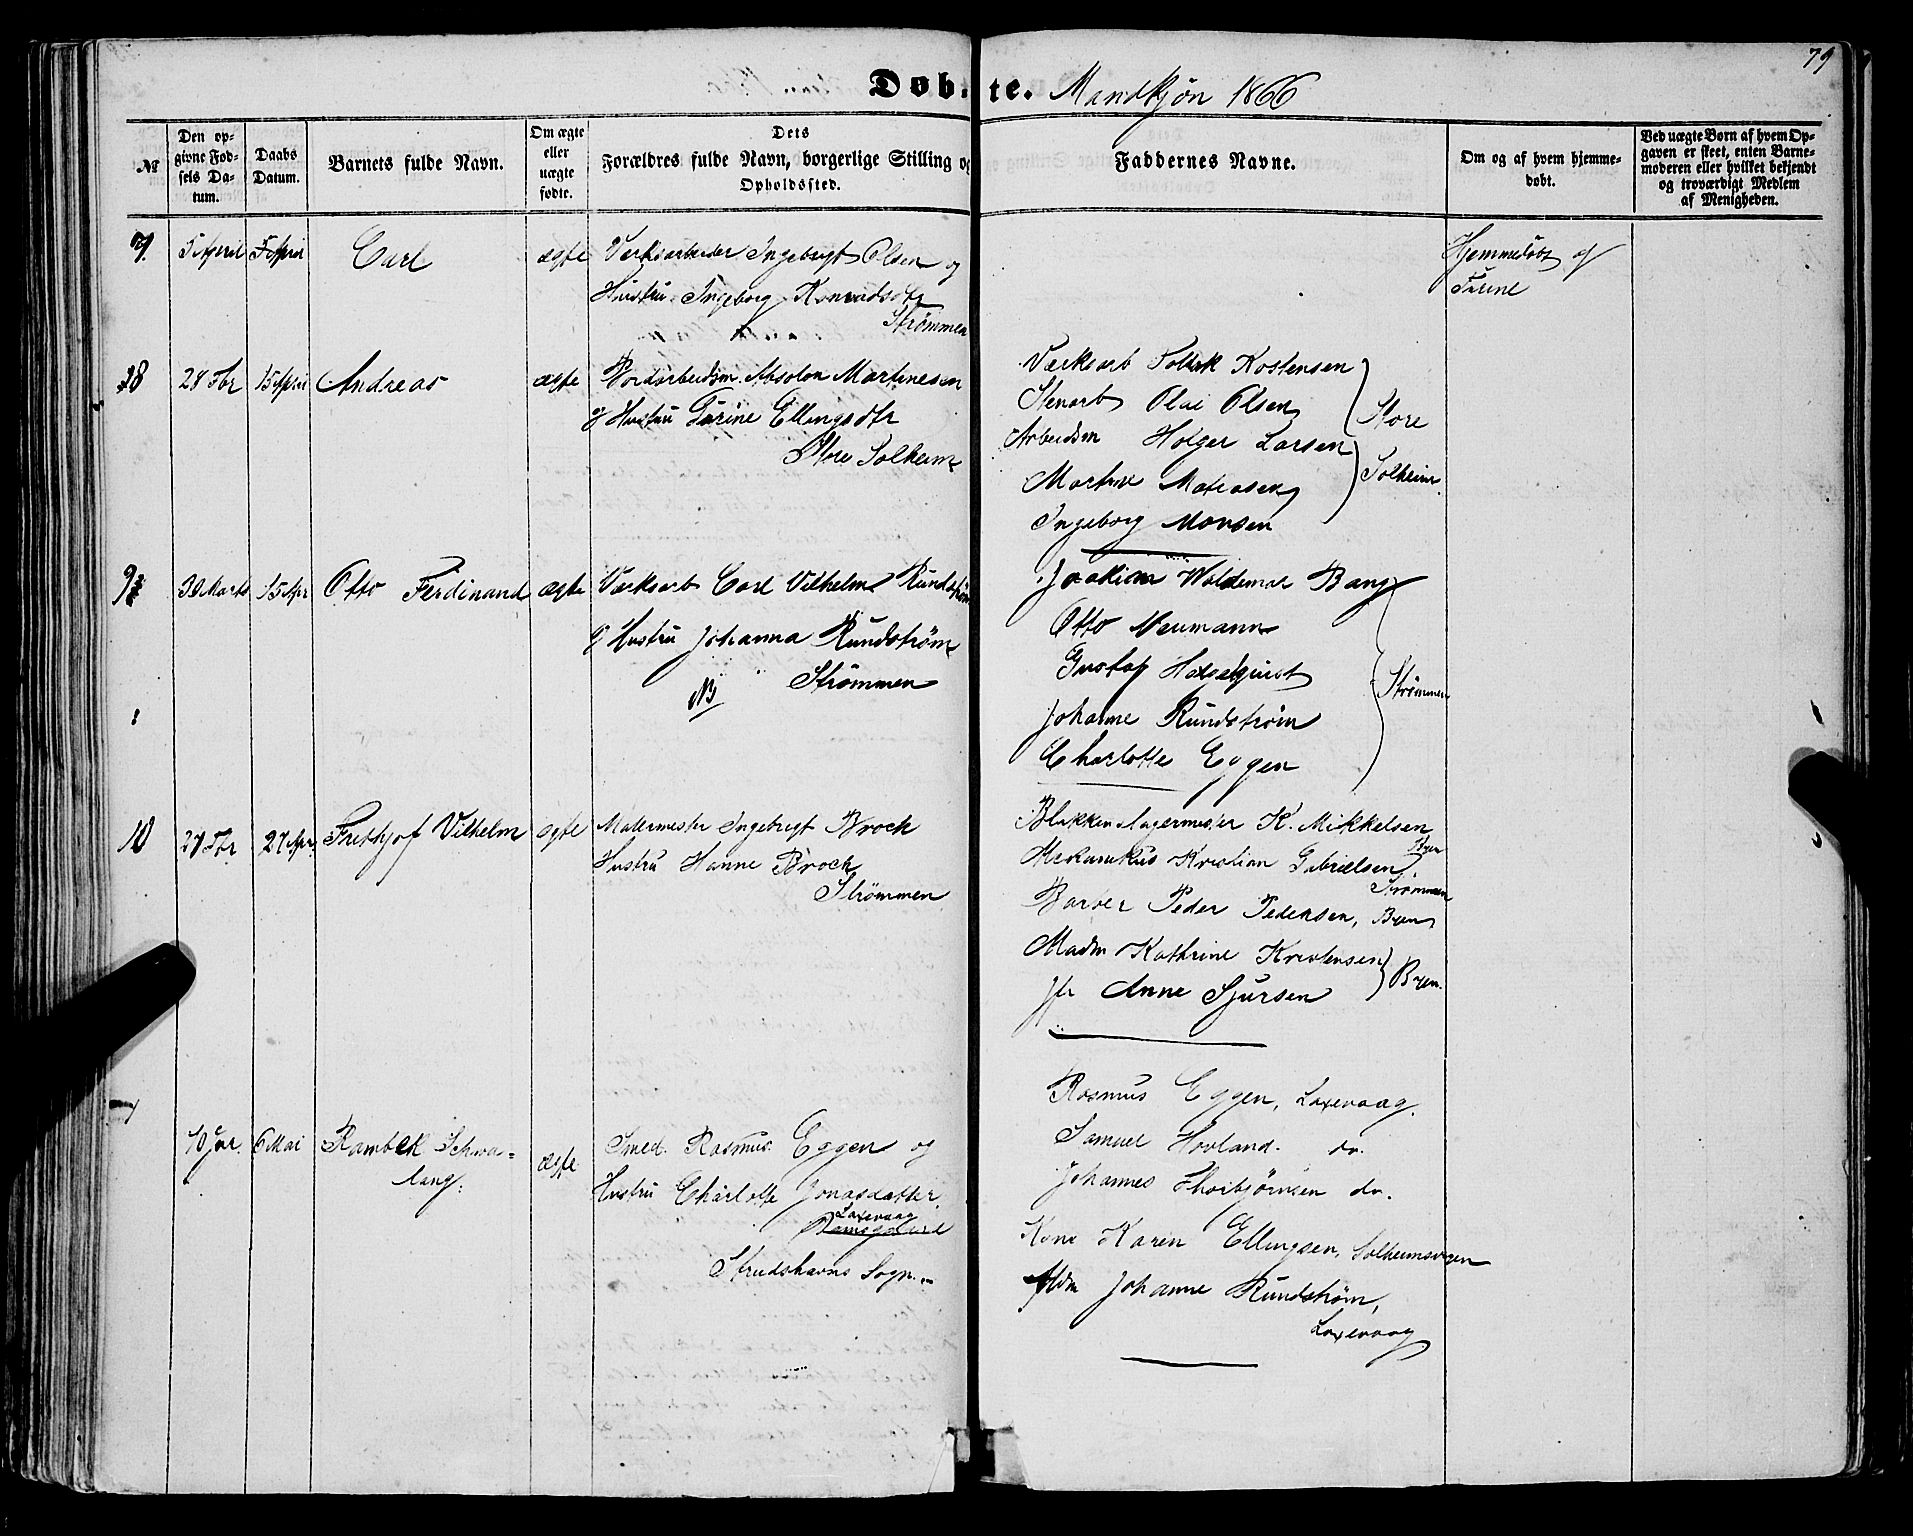 79
Døbte. Mandkjøn 1866
№
Den opgivne Fødsels Datum.
Daabs Datum.
Barnets fulde Navn.
Om ægte eller uægte fødte.
Dets Forældres fulde Navn, borgerlige Stilling og Opholdssted.
Faddernes Navne.
Om og af hvem hjemmedøbt.
Ved uægte Børn af hvem Opgaven er skeet, enten Barnemoderen eller hvilket bekjendt og troværdigt Medlem af Menigheden.
7. 5 April 5 April Carl ægte Verksarbeider Ingebrigt Olsen og
Hustru Ingeborg
Strømmen
Hjemmedøbt af
8 28 Fbr 15 April Andreas ægte Absolon Martinesen
og Hustru Tarine Ellingsdtr
Store Solheim
Værksarb Kostensen
Stenarb Olai Olsen
Arbeidsm Holger Larsen
Store
Solheim
Ingeborg Monsen
9 30 Marts 15 Apr Otto Ferdinand ægte Værksarb Carl Vilhelm Rundstrøm
og Hustru Johanna Rundstrøm
Strømmen
NB
Joakim Waldemar Bang
Otto Neumann
Gustaf
Johanne Rundstrøm
Charlotte Eggen
Strømmen
10 27 Fbr 27 Apr. Frithjof Vilhelm ægte Malermester Ingebrigt Brock
Hustru Hanne Brock
Strømmen
K. Mikkelsen
Byen
Mekanikus Kristian Gabrielsen
Strømmen
Peder Pedersen, Byen
Madm Kathrine Kristensen
Jfr Anne Sjursen
Byen.
10 Jan. 6 Mai Rambek Schwalang ægte Smed. Rasmus Eggen og
Hustru Charlotte Jonasdatter.
Laxevaag
Damsgaard
Strudshavns Sogn.
Rasmus Eggen, Laxevaag.
Samuel Hovland. do.
Johannes Thorbjørnsen do.
Kone Karen Ellingsen, Solheimsvigen
Mdm Johanne Rundstrøm,
Laxevaag